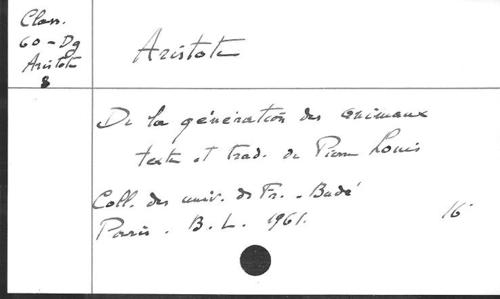 Class.
60 - Dg
Aristote
8
Aristote
De la génération des animaux
texte et trad. de Pierre Louis
Coll. des univ. de Fr. - Budé
Paris. B. L. 1961. 16